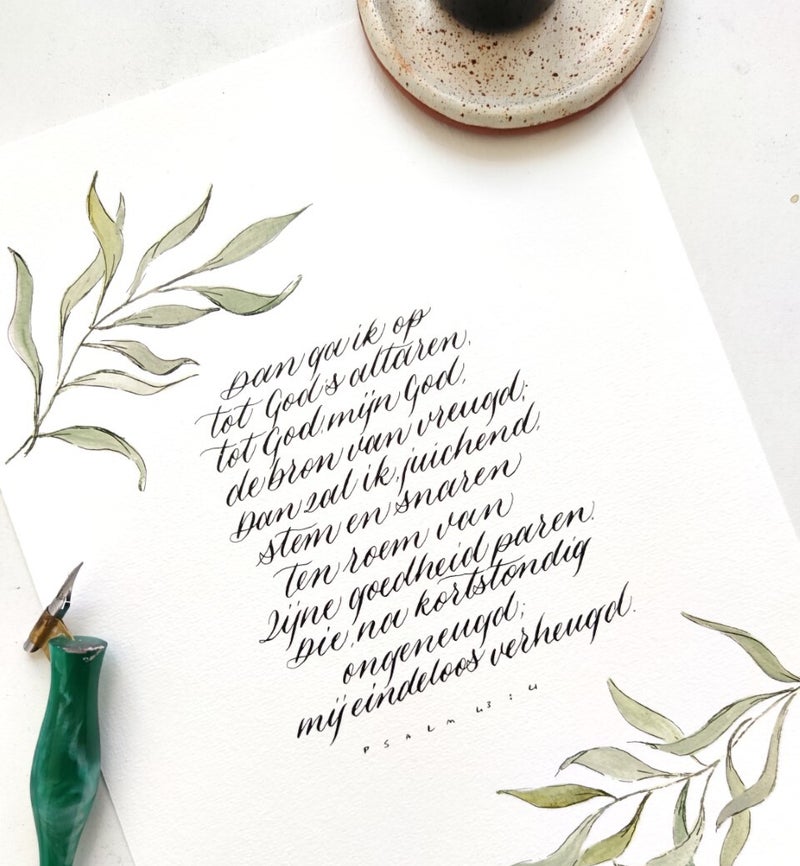 Dan ga ik op
tot God's altaren,
tot God, mijn God,
de bron van vreugd;
Dan zal ik, juichend,
stem en snaren
Ten roem van
Zijne goedheid paren.
Die, na kortstondig
ongeneugd;
mij eindeloos verheugd.
PSALM 43:4